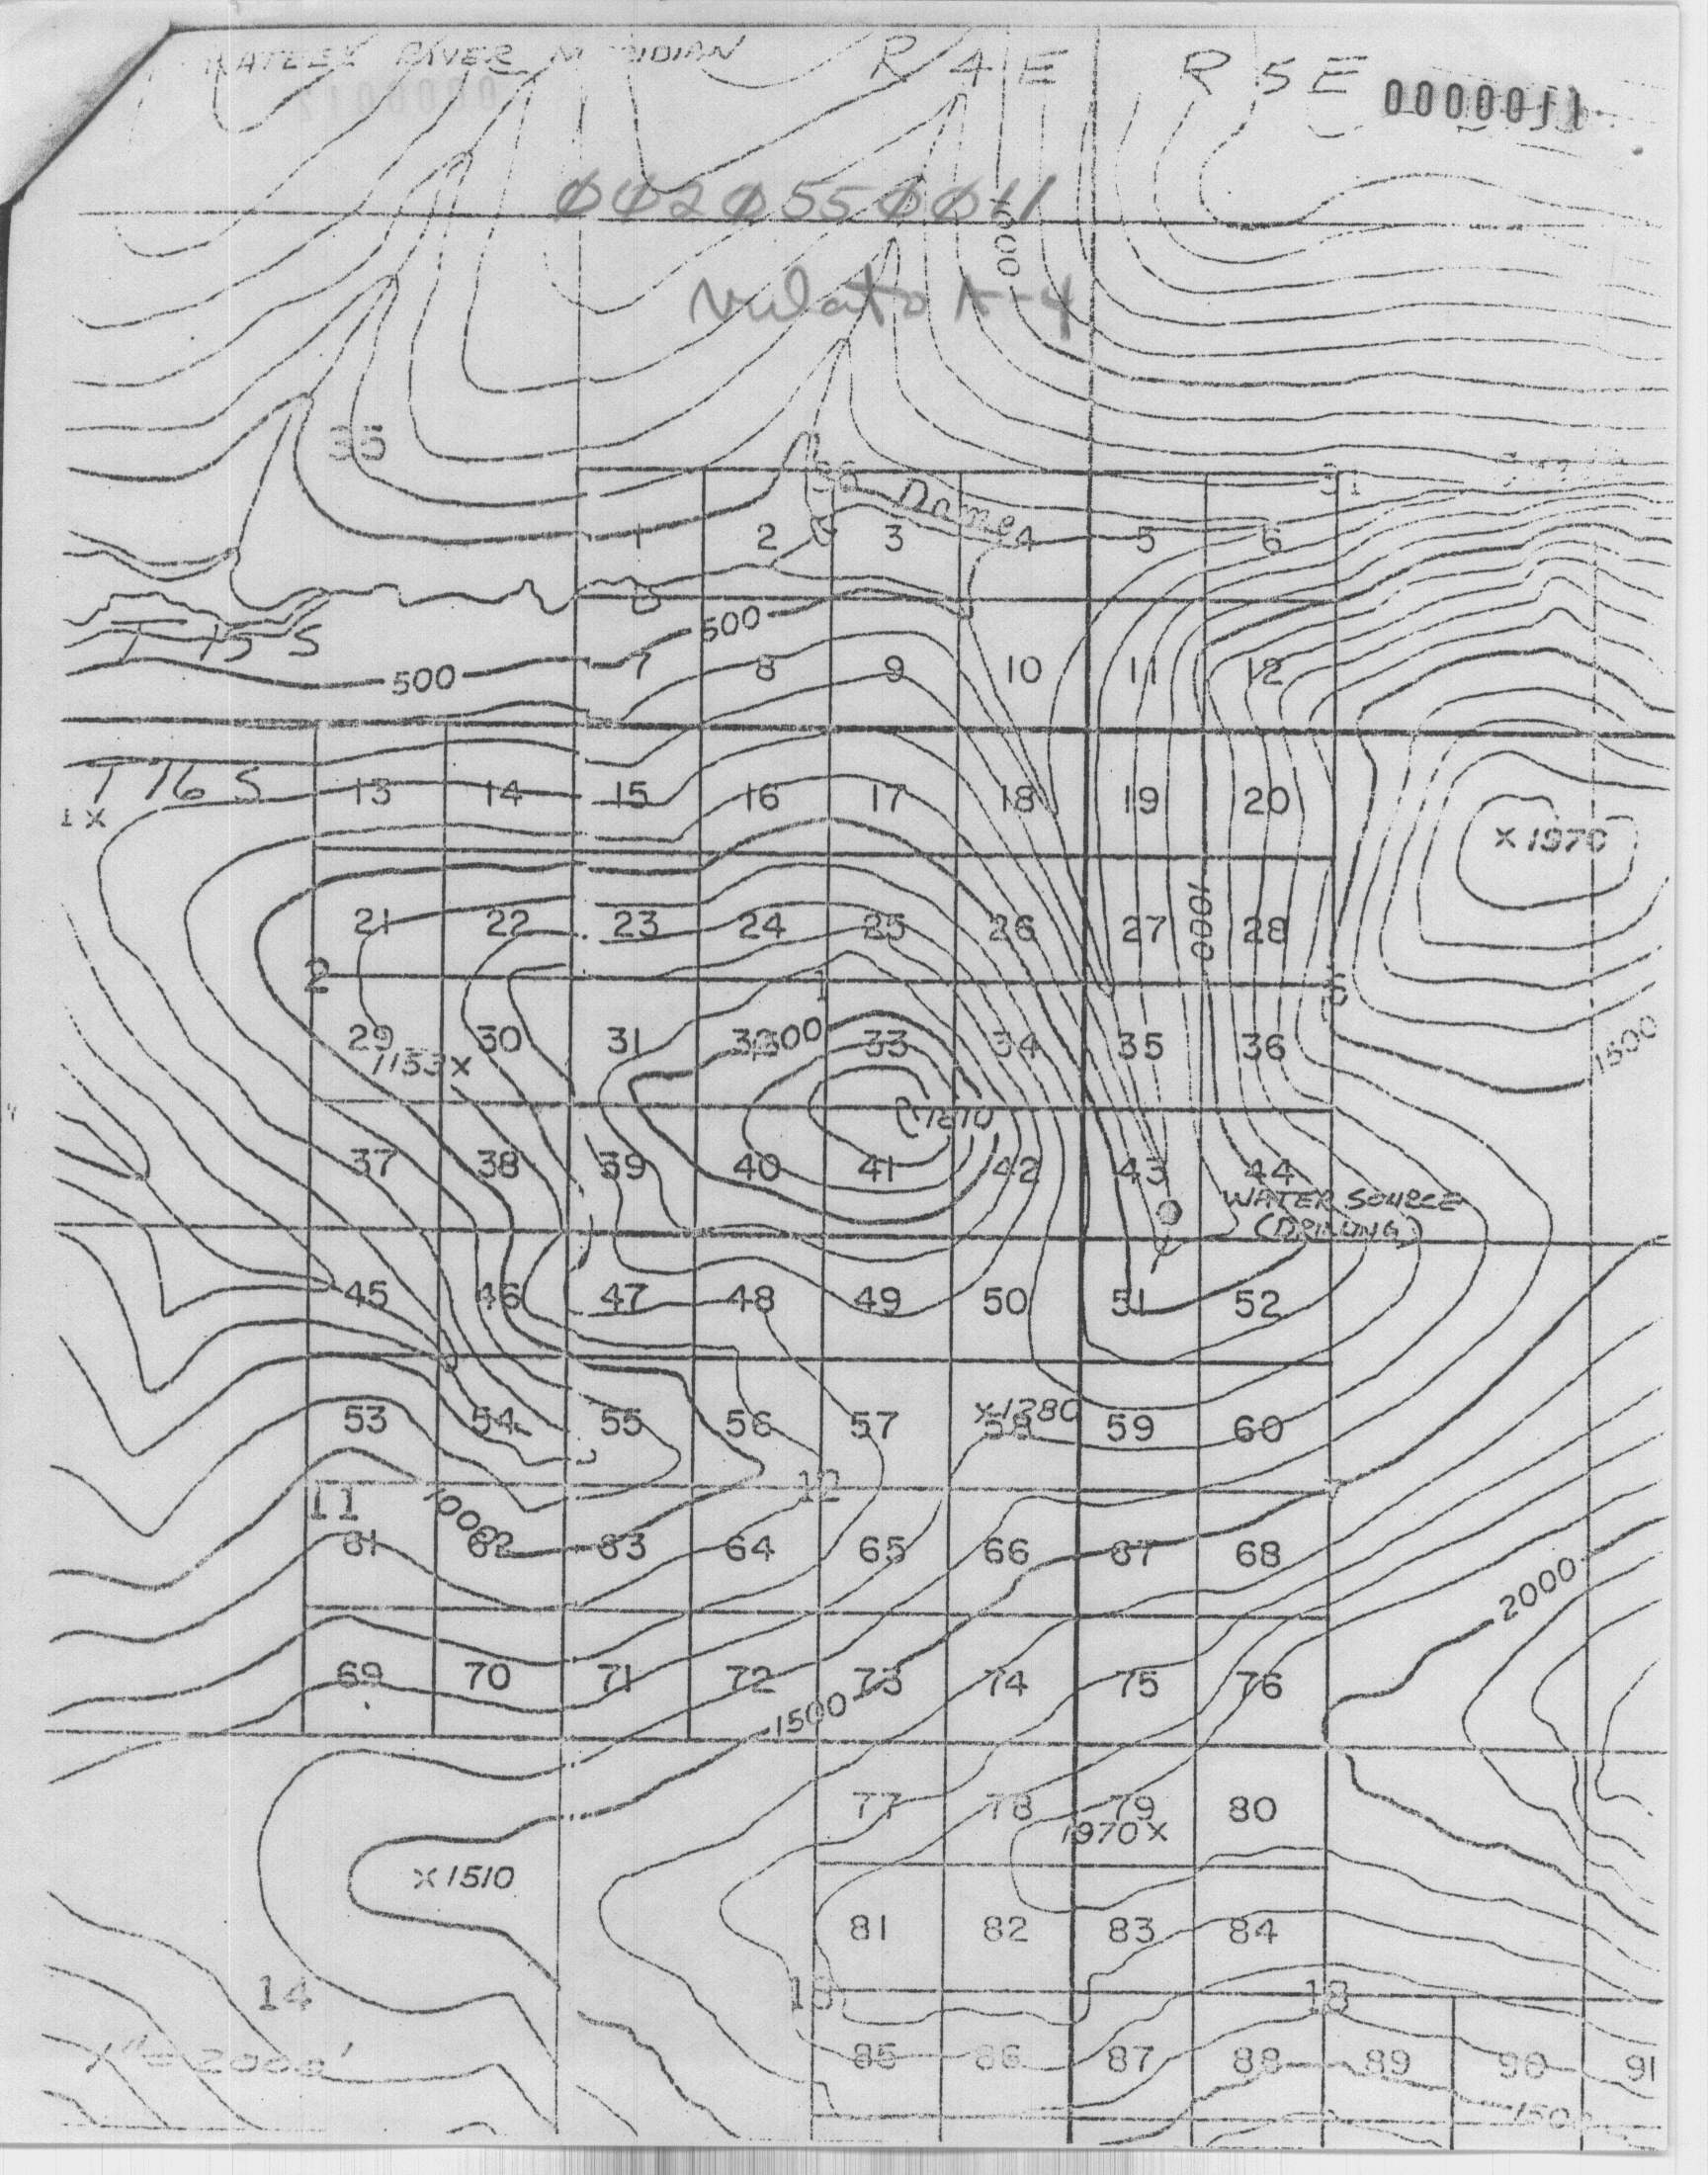 RIVER
R 4 E R 5 E
00000011
00205500011
Nulato A-4
35
36 Dome 31
1 2 3 4 5 6
500
T 15 S
500
7 8 9 10 11 12
T 16 S
13 14 15 16 17 18 19 20
X 1970
21 22 23 24 25 26 27 1000 28
2 1 6
29 30 31 32 33 34 35 36
1153X
1500
37 38 39 40 41 42 43 44
WATER SOURCE
(DRILLING)
45 46 47 48 49 50 51 52
X1280
53 54 55 56 57 58 59 60
11 12 7
1000
61 62 63 64 65 66 67 68
2000
69 70 71 72 73 74 75 76
1500
77 78 79 80
1970X
X 1510
81 82 83 84
14 13 18
1" = 2000'
85 86 87 88 89 90 91
1500